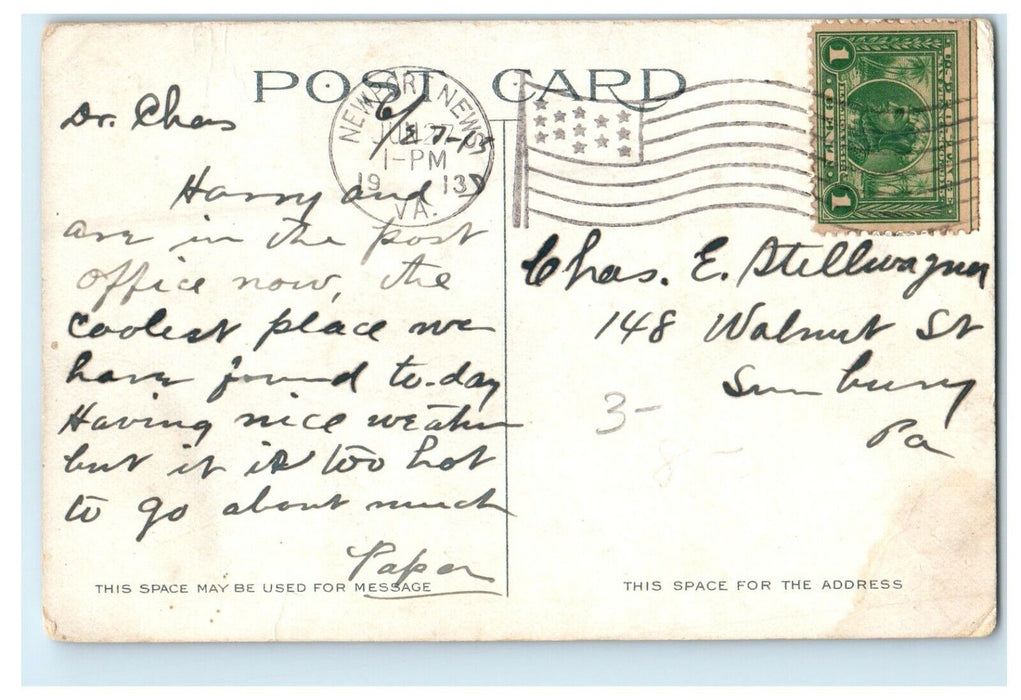 POST CARD
NEWPORT NEWS
JUN 27
1-PM
1913
VA.
1 1
Dr. Chas
6/27-13
Harry and
are in the post
office now, the
coolest place we
have found to-day
Having nice weather
but it is too hot
to go about much
Papa
Chas. E. Stellwagner
148 Walnut St
Sunbury
Pa
3-
8-
THIS SPACE MAY BE USED FOR MESSAGE
THIS SPACE FOR THE ADDRESS